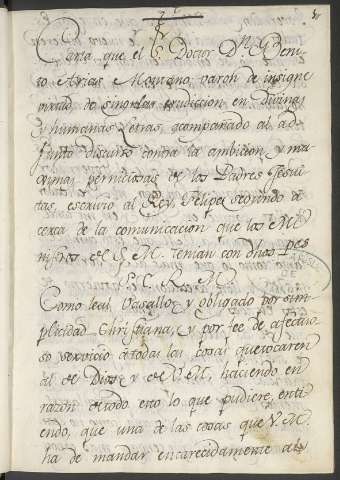 Carta, que el S.r Doctor D.n Beni-
to Arias Montano, varon de insigne
virtud, de singular erudiccion en Divinas,
y humanas Letras, acompañado al ad-
junto discurso contra la ambicion, y ma-
ximas perniciosas de los Padres Jesui-
tas, escrivio al Rey Felipe segundo a-
cerca de la comunicacion que los Mi-
nistros, de S. M. tenian con dhos P.es
Como leal Vasallo, y obligado por sim-
plicidad Christiana, y por fee de afectuo-
so servicio a todas las cosas que tocaren
al de Dios, y de V. M. haciendo en
razon de todo esto lo que pudiere, enti-
endo, que una de las cosas que V. M.
ha de mandar encarecidamente a los